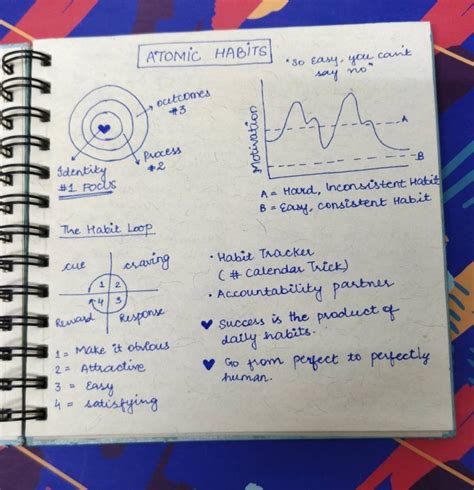 ATOMIC HABITS
"So Easy, you can't
say no"
outcomes
#3
Process
#2
Identity
#1 FOCUS
Motivation
A
B
A = Hard, Inconsistent Habit
B = Easy, Consistent Habit
The Habit Loop
cue
craving
1
2
4
3
Reward
Response
1 = Make it obvious
2 = Attractive
3 = Easy
4 = satisfying
• Habit Tracker
(# Calendar Trick)
• Accountability partner
♥ Success is the product of
daily habits.
♥ Go from perfect to perfectly
human.